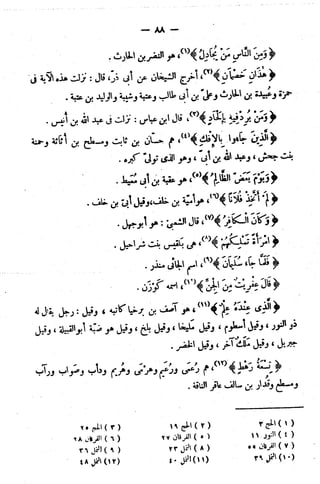 — ٨٨ —
﴿ وَمِنَ النَّاسِ مَنْ يُجَادِلُ ﴾(١)، هو النضر بن الحارث .
﴿ هَٰذَانِ خَصْمَانِ ﴾(٢)، أخرج الشيخان عن أبى ذرّ، قال : نزلت هذه الآية فى
حمزة وعُبيدة بن الحارث وعلىّ بن أبى طالب وعتبة وشيبة والوليد بن عتبة .
﴿ وَمَنْ يُرِدْ فِيهِ بِإِلْحَادٍ ﴾(٣)، قال ابن عباس : نزلت فى عبد الله بن أنيس .
﴿ الَّذِينَ جَاءُوا بِالْإِفْكِ ﴾(٤)، هم حسّان بن ثابت ومسطح بن أثاثة وحمنة
بنت جحش ، وعبد الله بن أبىّ ، وهو الذى تولّى كبره .
﴿ وَيَوْمَ يَعَضُّ الظَّالِمُ ﴾(٥)، هو عقبة بن أبى مُعيط .
﴿ لَمْ أَتَّخِذْ فُلَانًا ﴾(٦)، هو أميّة بن خلف، وقيل أبىّ بن خلف .
﴿ وَكَانَ الْكَافِرُ ﴾(٧)، قال الشعبىّ : هو أبو جهل .
﴿ امْرَأَةً تَمْلِكُهُمْ ﴾(٨)، هى بلقيس بنت شراحيل .
﴿ فَلَمَّا جَاءَ سُلَيْمَانَ ﴾(٩)، اسم الجائى منذر .
﴿ قَالَ عِفْرِيتٌ مِنَ الْجِنِّ ﴾(١٠)، اسمه كَوْزَن .
﴿ الَّذِى عِنْدَهُ عِلْمٌ ﴾(١١)، هو آصف بن برخيا كاتبه ، وقيل : رجل يقال له
ذو النور ، وقيل أسطوم ، وقيل مليخا ، وقيل بلخ ، وقيل هو ضبّة أبو القبيلة ، وقيل
جبريل ، وقيل مَلَك آخر ، وقيل الخضر .
﴿ تِسْعَةُ رَهْطٍ ﴾(١٢)، هم رُعمى ورُعَيم وهَرْمى وهُرَيم وداب وصواب ورآب
ومسطع وقُدار بن سالف عاقر الناقة .
(١) الحج ٣ (٢) الحج ١٩ (٣) الحج ٢٥
(٤) النور ١١ (٥) الفرقان ٢٧ (٦) الفرقان ٢٨
(٧) الفرقان ٥٥ (٨) النمل ٢٣ (٩) النمل ٣٦
(١٠) النمل ٣٩ (١١) النمل ٤٠ (١٢) النمل ٤٨